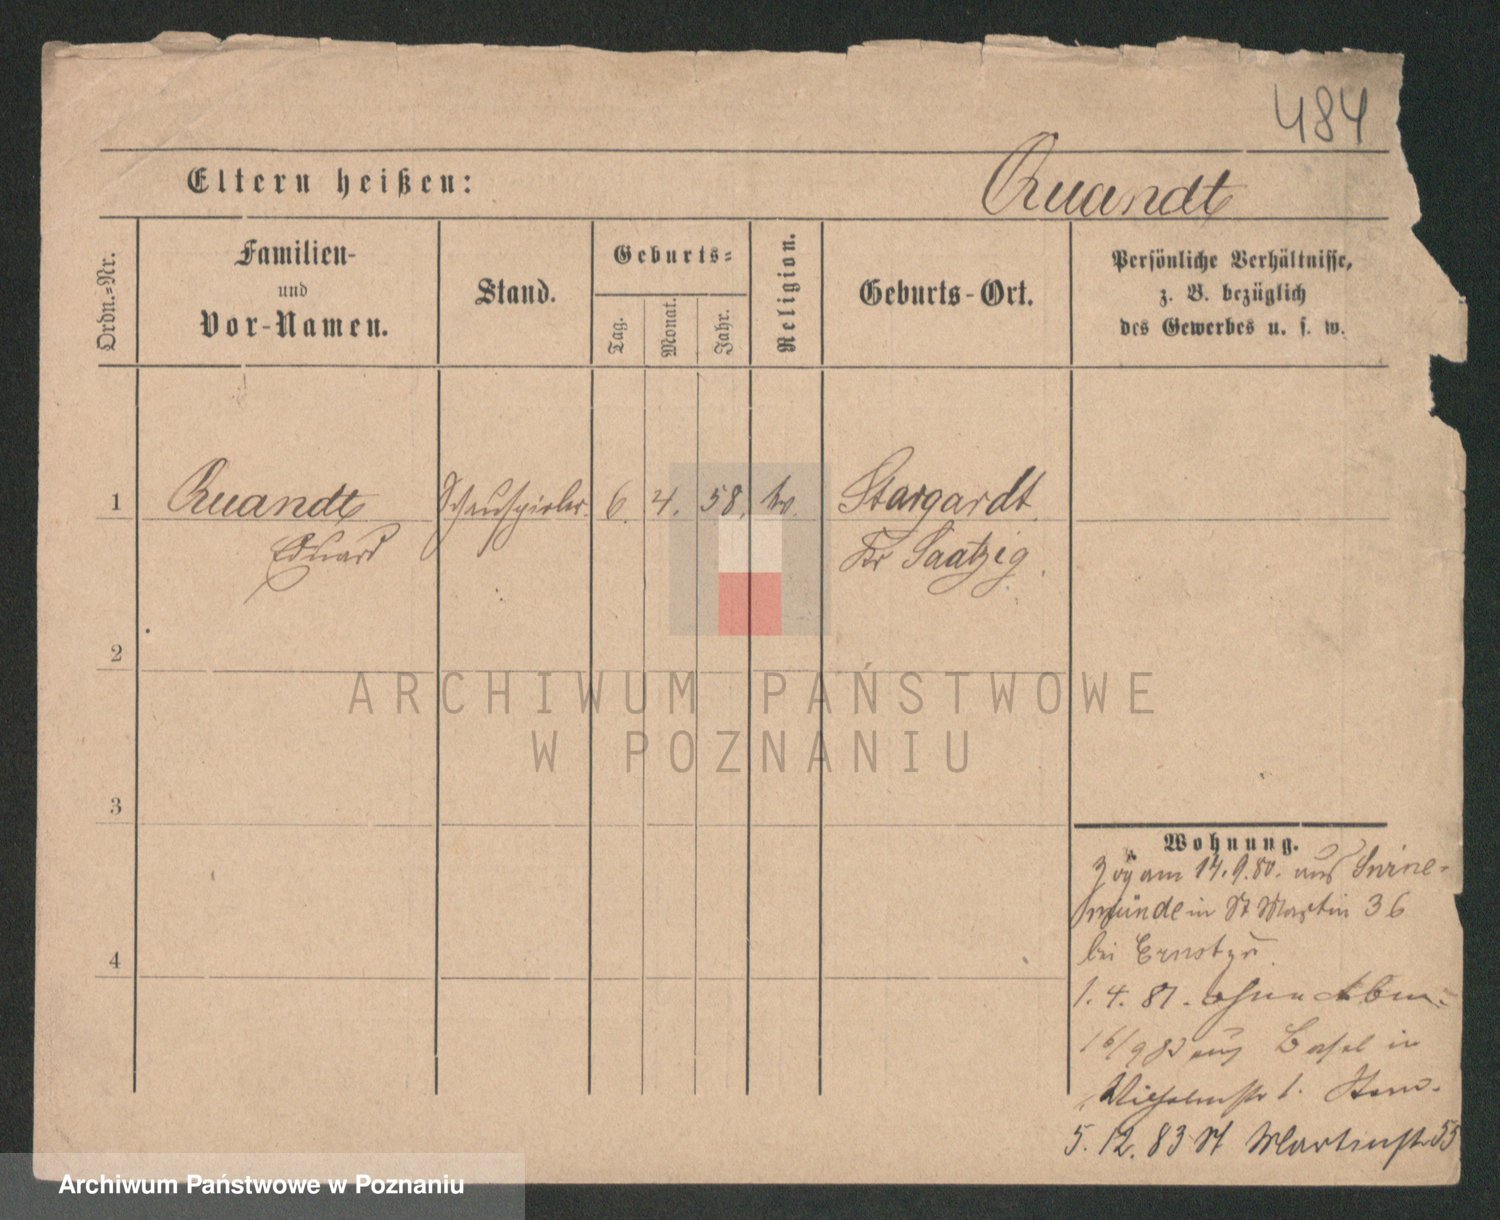 484
Eltern heißen:
Quandt
Ordn.-Nr.
Familien-
und
Vor-Namen.
Stand.
Geburts-
Tag.
Monat.
Jahr.
Religion.
Geburts-Ort.
Persönliche Verhältnisse,
z. B. bezüglich
des Gewerbes u. s. w.
1
Quandt
Eduard
Schauspieler
6.
4.
58.
ev.
Stargardt
Kr Saatzig.
2
ARCHIWUM PAŃSTWOWE
W POZNANIU
3
Wohnung.
Zog am 14.9.80. aus Swine-
münde in St Martin 36
bei
4
1. 4. 81. ohne Abm.
16/9 83 aus Basel in
Wilhelmstr 1.
5. 12. 83 St Martinstr 55
Archiwum Państwowe w Poznaniu